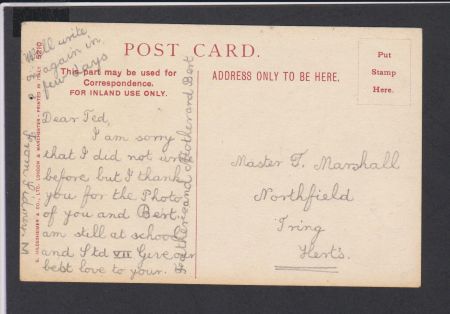 Will write
again in
few days
POST CARD.
This part may be used for
Correspondence.
FOR INLAND USE ONLY.
ADDRESS ONLY TO BE HERE.
Put
Stamp
Here.
Dear Ted,
I am sorry
that I did not
before but I thank
you for the Photo
of you and Bert.
am still at school
and Std VII Give our
best love to your.
Father and Mother and Bert
from
M
Master T. Marshall
Northfield
Tring
Hert's.
E. HILDESHEIMER & CO., LTD. LONDON & MANCHESTER - PRINTED IN ITALY 5210